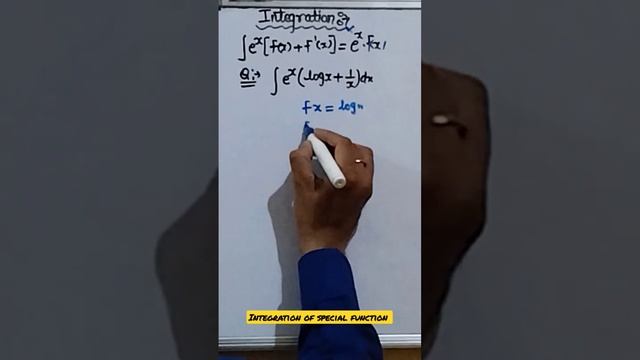 Integration
∫eˣ[f(x)+f'(x)] = eˣ.f(x)
Q:→ ∫eˣ(logx+1/x)dx
fx = logx
f
INTEGRATION OF SPECIAL FUNCTION